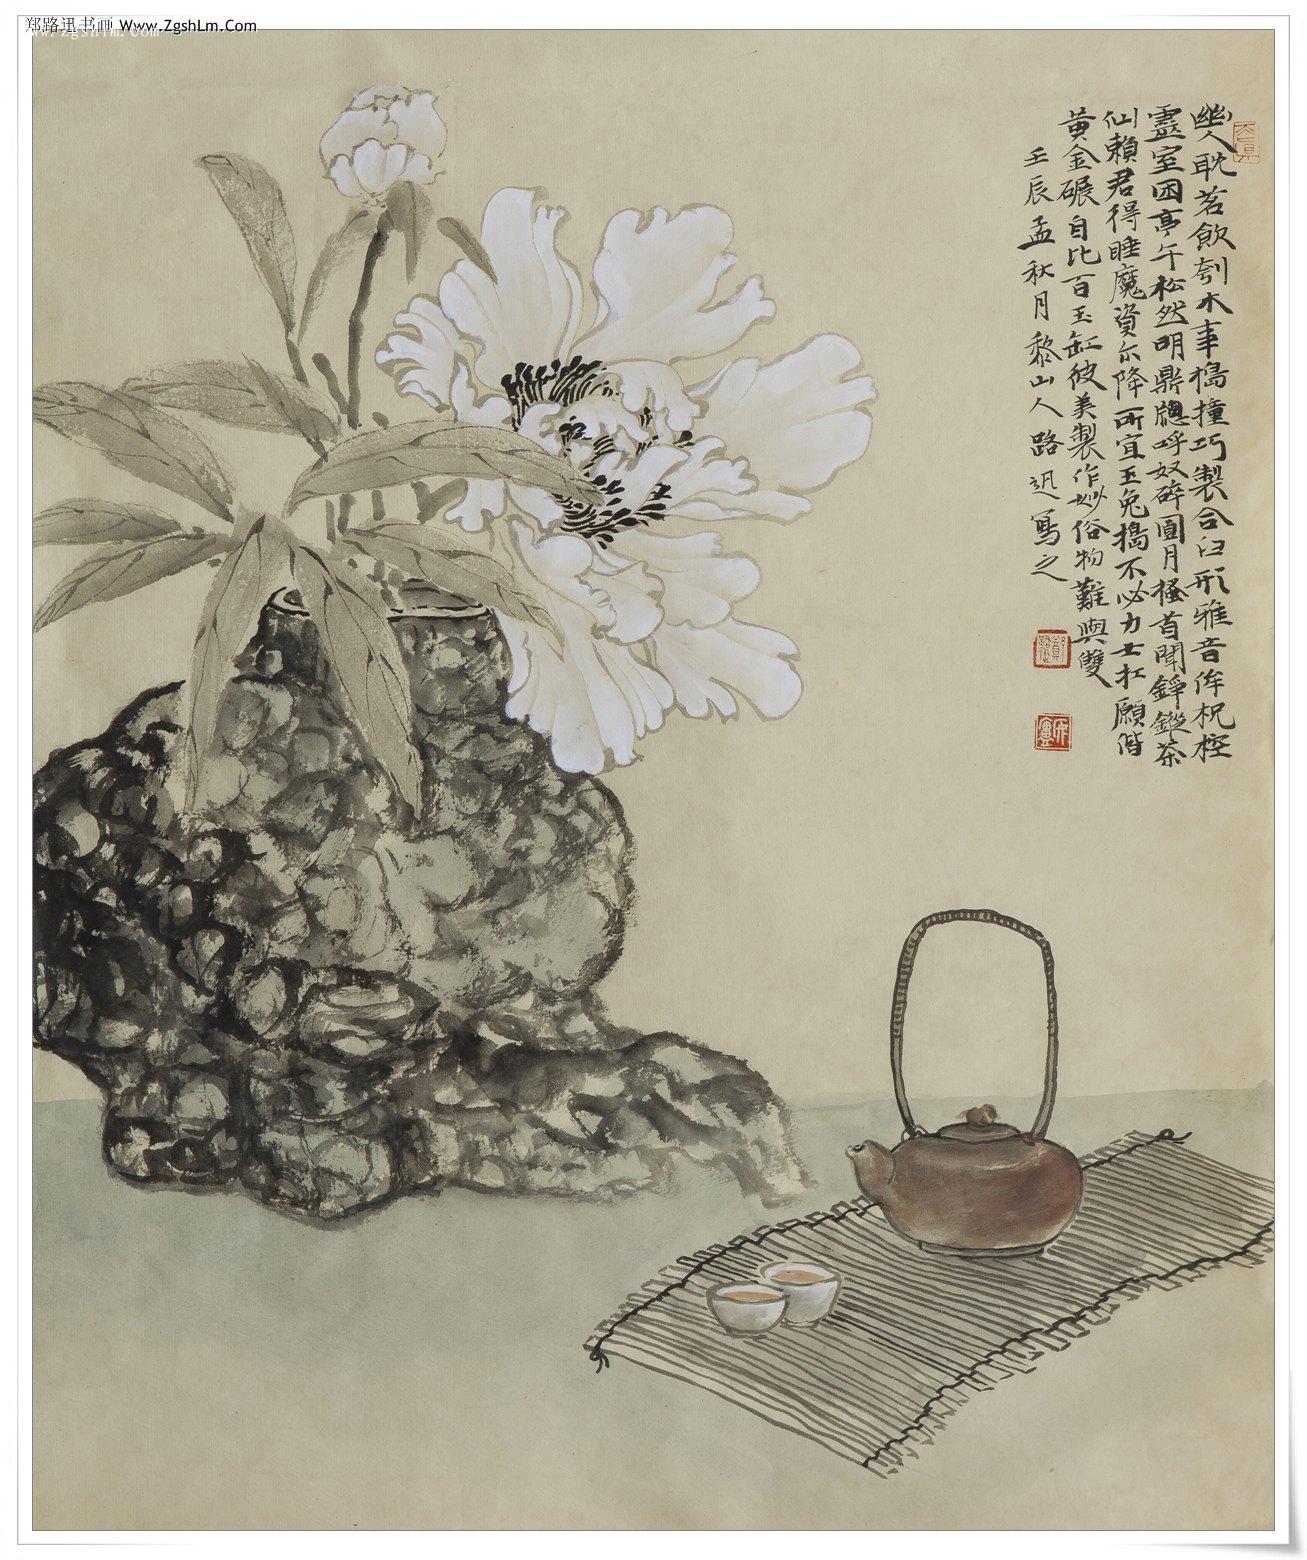 郑路迅书画 Www.ZgshLm.Com
www.zgshlm.com
幽人耽茗飲刳木事搗撞巧製合臼形雅音侔柷椌
靈室困亭午松然明鼎牕呼奴碎圓月搔首聞錚鏦茶
仙賴君得睡魔資尔降所宜玉兔搗不必力士扛願偕
黄金碾自比百玉缸彼美製作妙俗物難與雙
壬辰孟秋月黎山人路迅寫之